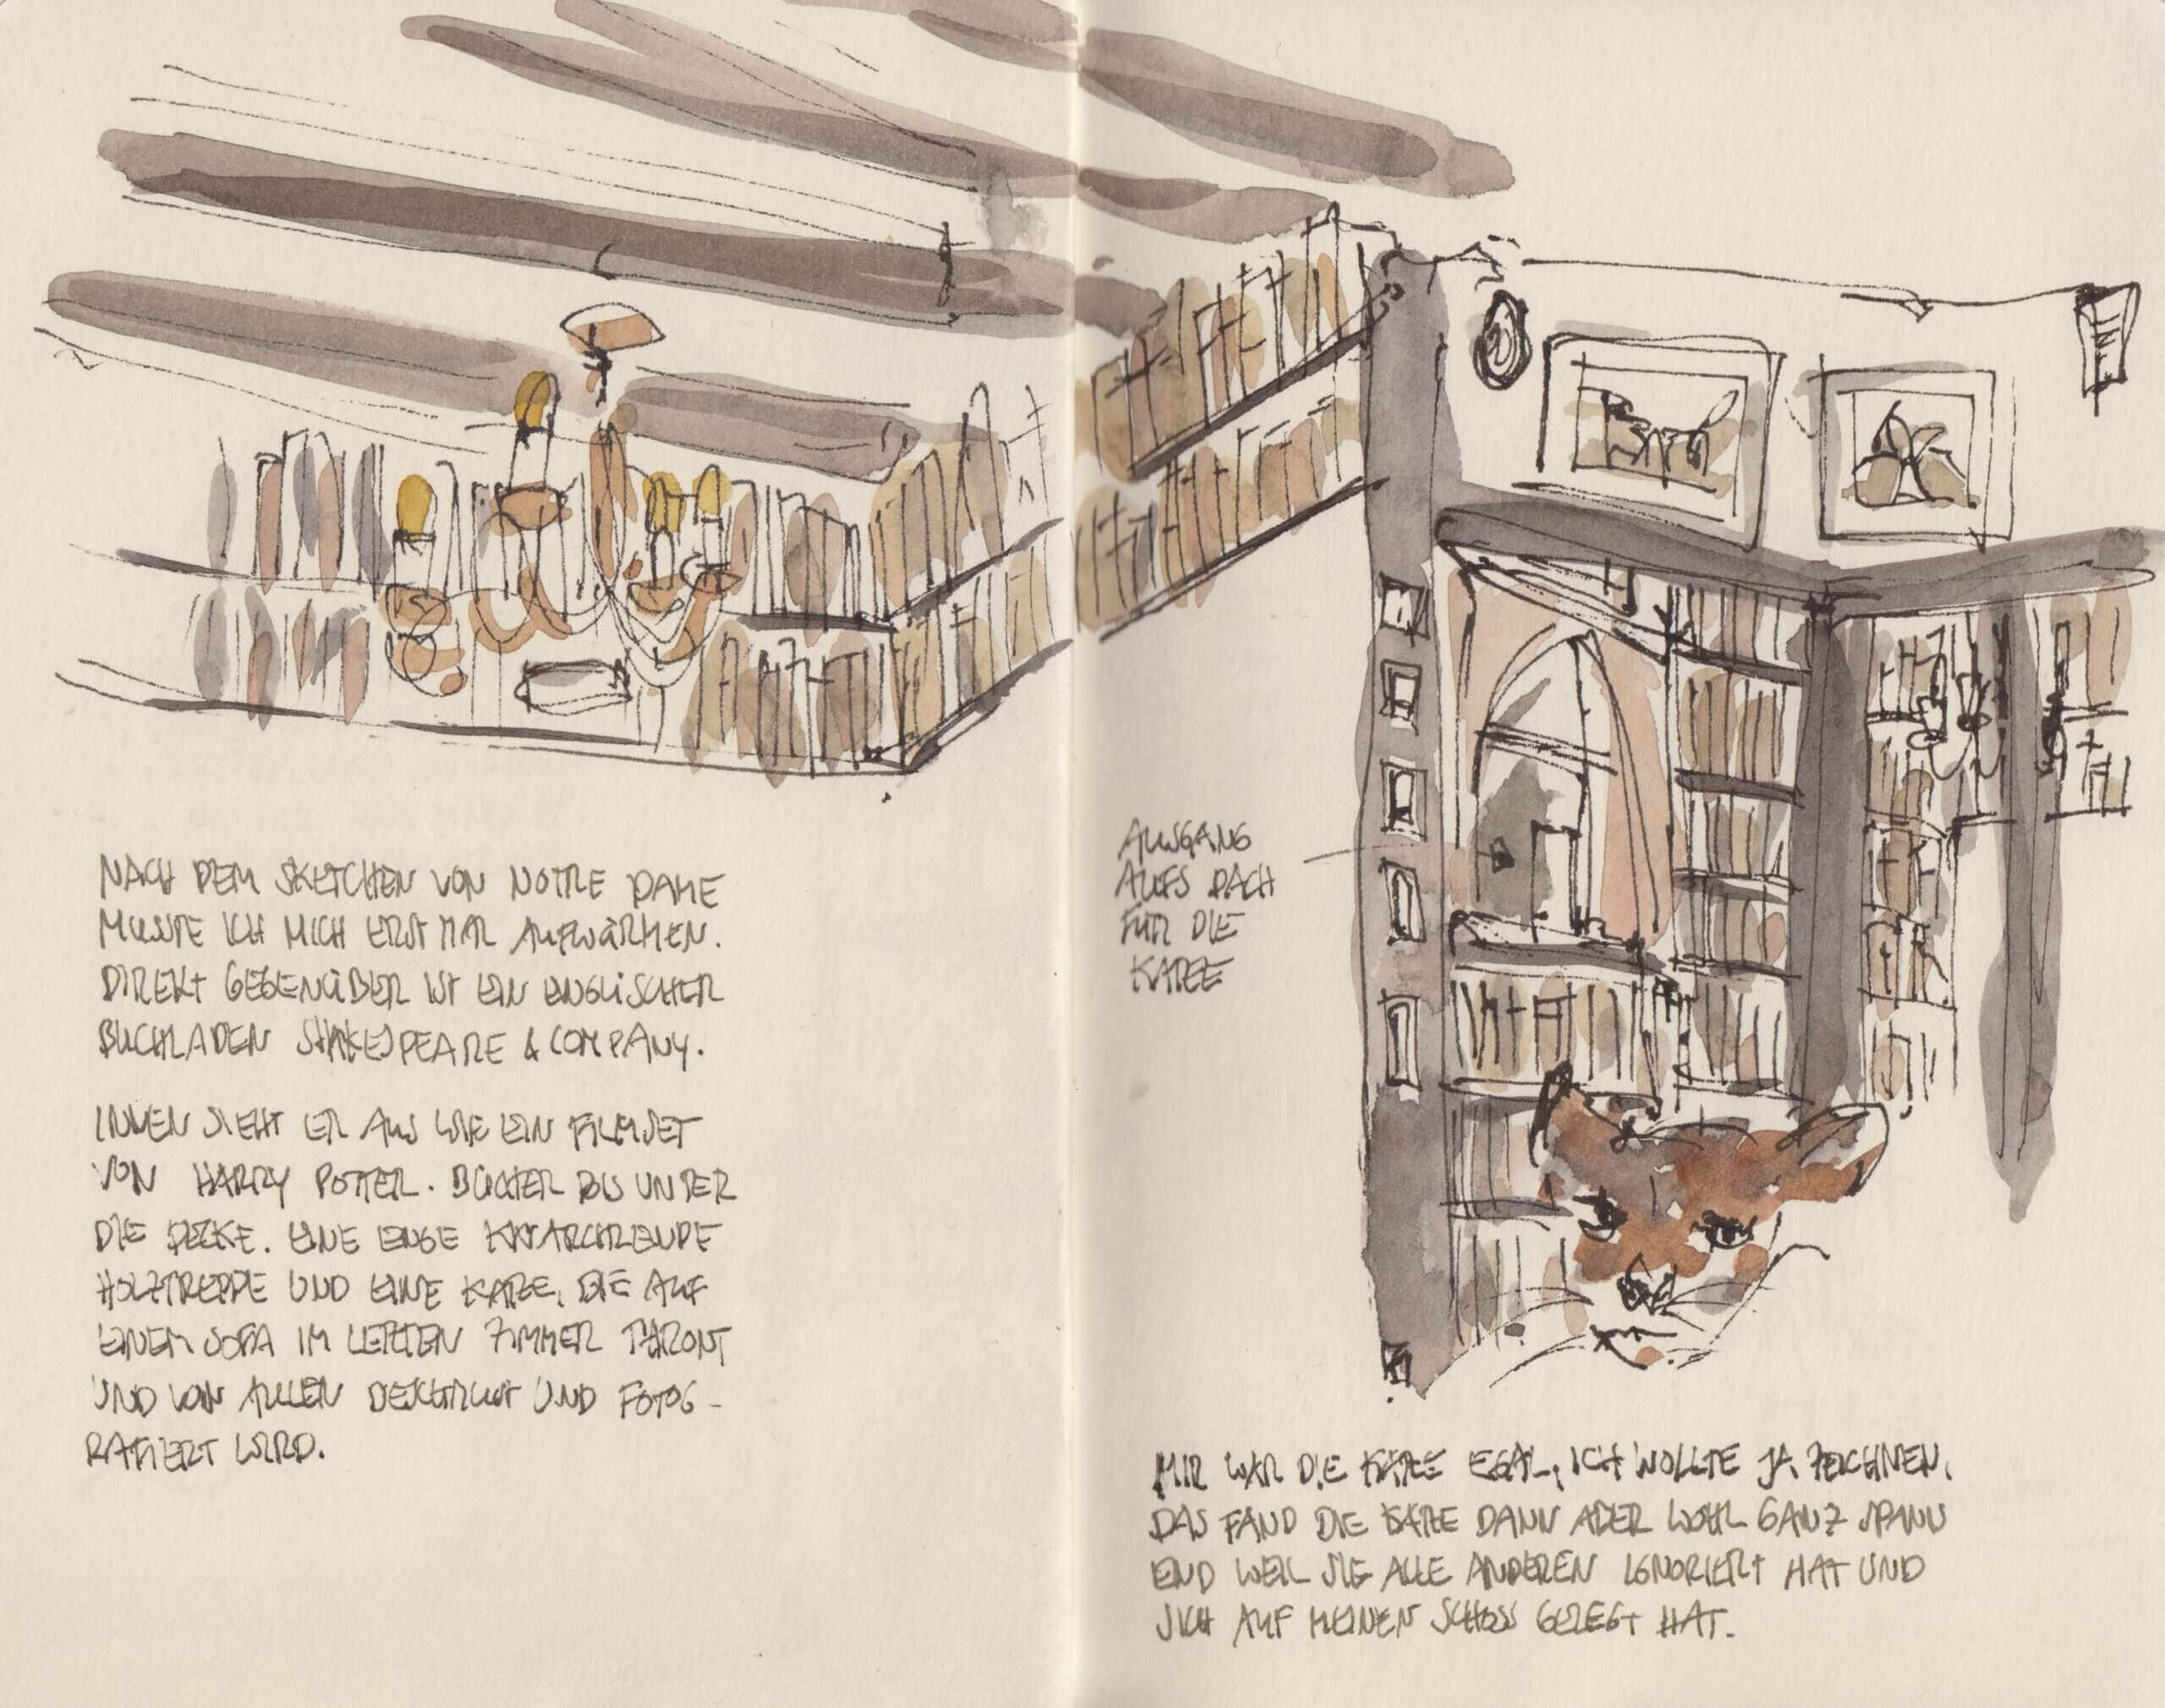 NACH DEM SKETCHEN VON NOTRE DAME
MUSSTE ICH MICH ERST MAL AUFWÄRMEN.
DIREKT GEGENÜBER IST EIN ENGLISCHER
BUCHLADEN SHAKESPEARE & COMPANY.
INNEN SIEHT ER AUS WIE EIN FILMSET
VON HARRY POTTER. BÜCHER BIS UNTER
DIE DECKE. EINE ENGE KNARCHZENDE
HOLZTREPPE UND EINE KATZE, DIE AUF
EINEM SOFA IM LETZTEN ZIMMER THRONT
UND VON ALLEN BESCHMUST UND FOTOG-
RAFIERT WIRD.
AUSGANG
AUFS DACH
FÜR DIE
KATZE
MIR WAR DIE KATZE EGAL, ICH WOLLTE JA ZEICHNEN.
DAS FAND DIE KATZE DANN ABER WOHL GANZ SPANN
END WEIL SIE ALLE ANDEREN IGNORIERT HAT UND
SICH AUF MEINEN SCHOSS GELEGT HAT.